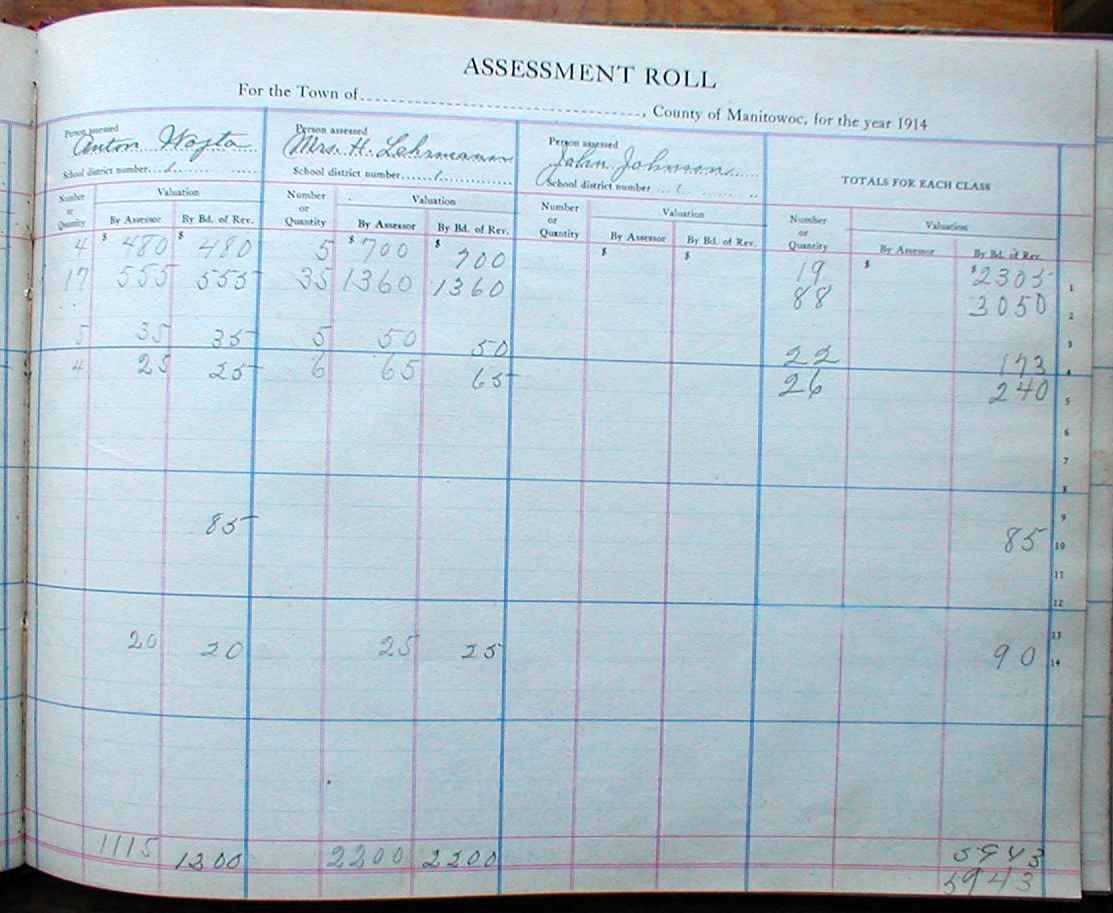 ASSESSMENT ROLL
For the Town of , County of Manitowoc, for the year 1914
Person assessed Person assessed Person assessed
Anton Wojta Mrs. H. Lehrmann John Johnson
School district number 1 School district number 1 School district number 1 TOTALS FOR EACH CLASS
Number or Quantity Valuation Number or Quantity Valuation Number or Quantity Valuation Number or Quantity Valuation
By Assessor By Bd. of Rev. By Assessor By Bd. of Rev. By Assessor By Bd. of Rev. By Assessor By Bd. of Rev.
4 $ 480 $ 480 5 $ 700 $ 700 $ $ 19 $ $ 2305 1
17 555 555 35 1360 1360 88 3050 2
3
5 35 35 5 50 50 22 173 4
4 25 25 6 65 65 26 240 5
6
7
8
9
85 85 10
11
12
13
20 20 25 25 90 14
1115 1200 2200 2200 5943
5943